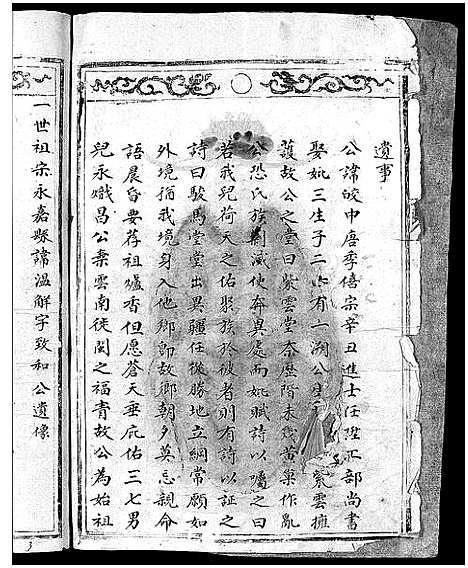 遺事
公諱皎中唐季僖宗辛丑進士任陞工部尚書
娶妣三生子二六有一溯公生 紫雲擁
護故公之堂曰紫雲堂奈歷階未幾黃巢作亂
公恐氏族剿滅使奔異處而妣賦詩以囑之曰
若我兒荷天之佑聚族於彼者則有詩以証之
詩曰駿馬堂堂出異疆任從勝地立綱常願如
外境猶我境身入他鄉即故鄉朝夕莫忘親命
語晨昏要荐祖爐香但愿蒼天垂庇佑三七男
兒永熾昌公棄雲南徒閩之福青故公為始祖
一世祖宗永嘉縣諱溫解字致和公遺像
3